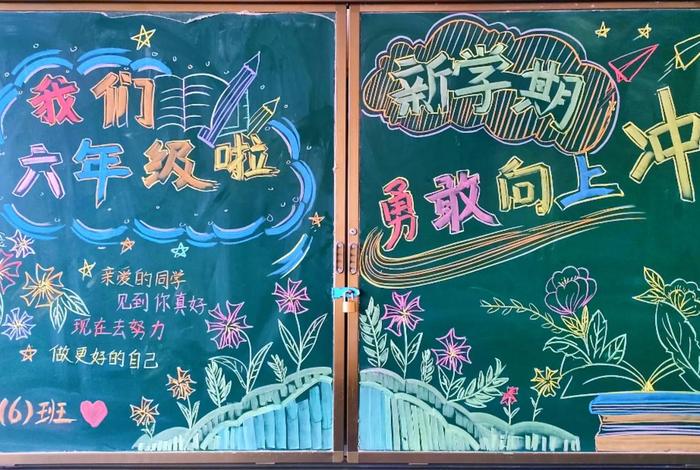 我们
六年级啦
亲爱的同学
见到你真好
现在去努力
做更好的自己
(6)班
新学期
勇敢向上
冲